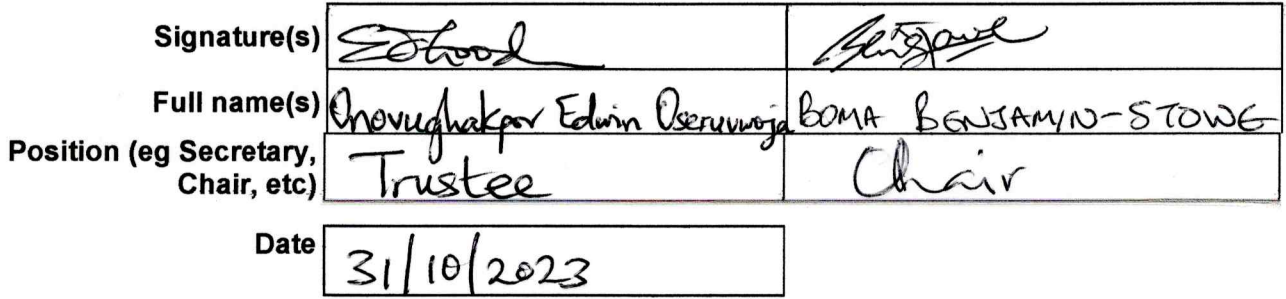 Signature(s)
Full name(s) Onovughakpor Edwin Oseruvwoja BOMA BENJAMIN-STOWE
Position (eg Secretary, Chair, etc) Trustee Chair
Date 31/10/2023